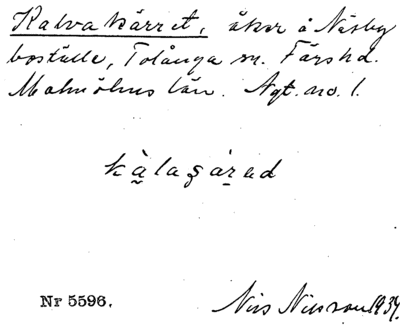 Kalvakärret, åker å Näsby
boställe, Tolånga sn. Färs hd.
Malmöhus län. Agt. no. 1.
kàlaʂárad
Nr 5596.
Nils Nilsson 1934.